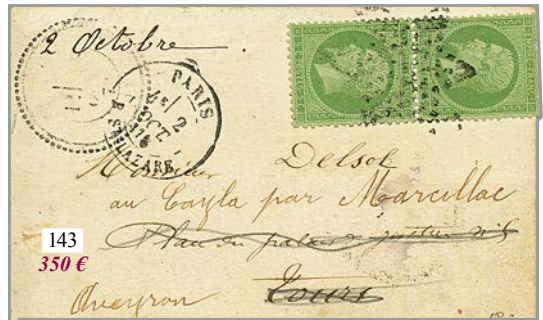 2 Octobre
PARIS
2
OCT
R. ST LAZARE
Delsol
Monsieur
au Cayla par Marcillac
Place du palais de justice
Tours
Aveyron
143
350 €